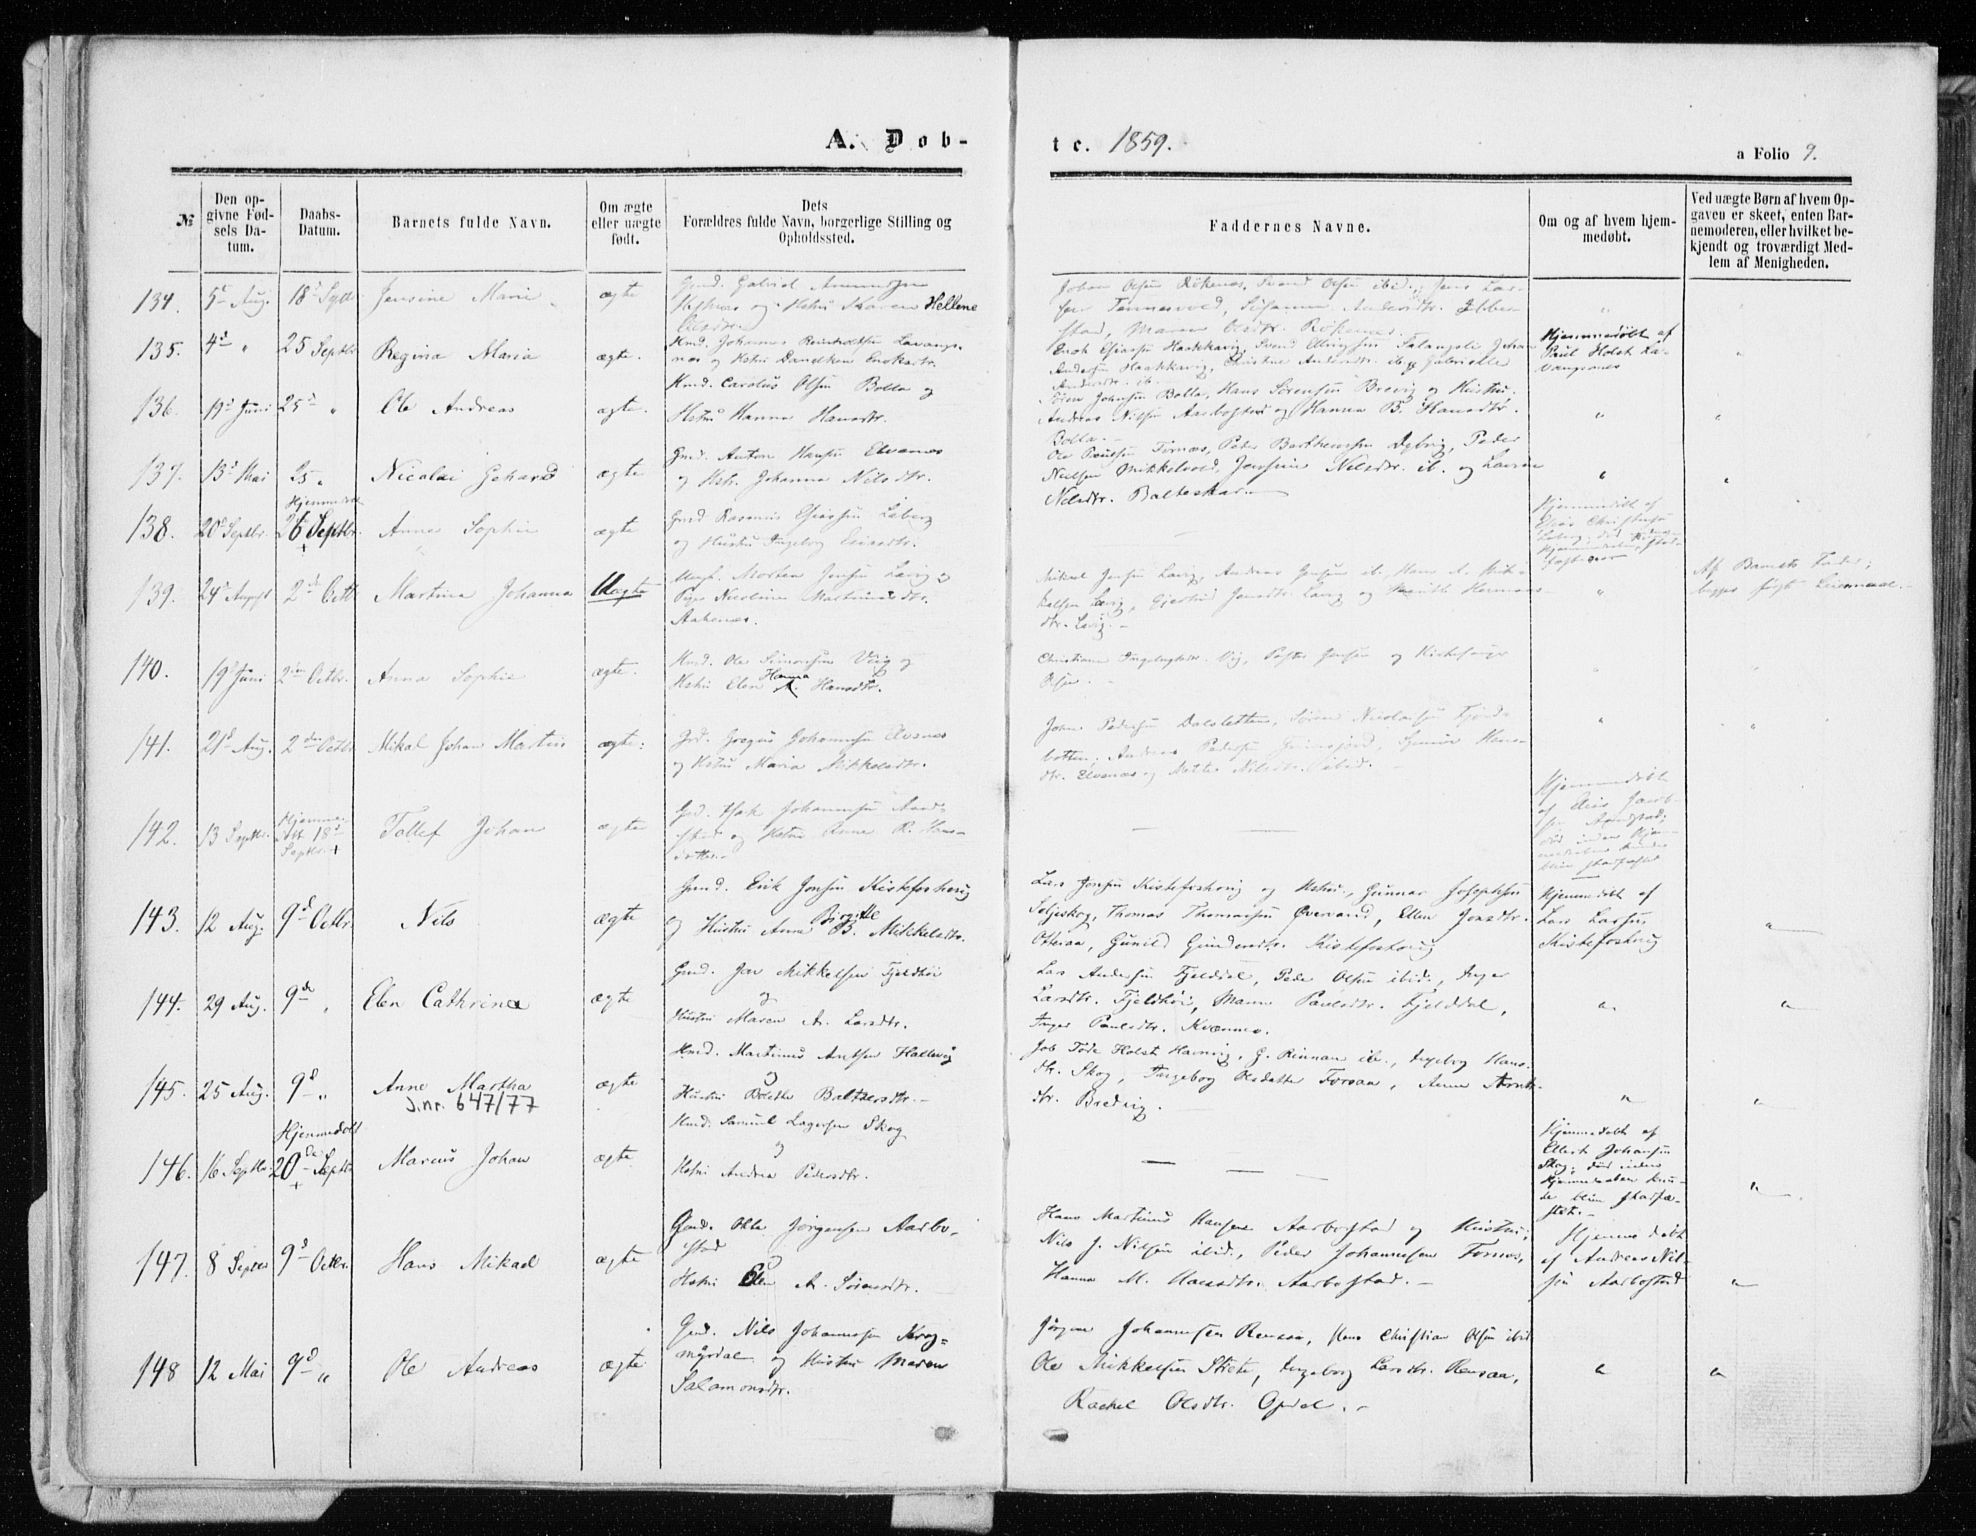 A. Døb-
te. 1859.
a Folio 9.
№
Den op-
givne Fød-
sels Da-
tum.
Daabs-
Datum.
Barnets fulde Navn.
Om ægte
eller uægte
født.
Dets
Forældres fulde Navn, borgerlige Stilling og
Opholdssted.
Faddernes Navne.
Om og af hvem hjem-
medøbt.
Ved uægte Børn af hvem Op-
gaven er skeet, enten Bar-
nemoderen, eller hvilket be-
kjendt og troværdigt Med-
lem af Menigheden.
134. 5 Aug. 18 Septbr Jensine Marie ægte
Gmd. Gabriel
og Hstru Karen Hellene
Johan Olsen Rökenes, Svend Olsen ibid., Jens Lar-
sen Tennevold, Susanna Andersdtr. Ibbe-
stad, Maren Olsdtr. Rökenes.
135. 4 " 25 Septbr Regina Maria ægte.
Hmd. Johannes Lavangs-
nes og Hstru
Enok Haakkavig, Svend
Andersen Haakkavig, Christine Andersdtr. ib. og Gabrielle
Andersdtr. ib.
Hjemmedöbt af
Poul Holst La-
vangsnes
136. 19 Juni 25 " Ole Andreas ægte.
Hmd. Carolus Olsen Bolla og
Hstru Hanna Hansdtr.
Sören Johnsen Bolla, Hans Sörensen Brevig og Hustru.
Andreas Nilsen Aarbogstad og Hanna B. Hansdtr.
Bolla.
137. 13 Mai 25 " Nicolai Gehard ægte
Gmd. Anton Hansen Elvenes
og Hstr. Johanna Nilsdtr.
Ole Poulsen Fornes, Peder Dybvig, Peder
Nielsen Mikkelvold, Jensine Nelsdtr. ib. og Lavine
Nelsdtr. Balteskard
138. 20 Septbr. Hjemmedöbt
26 Septbr. Anne Sophie ægte
Gmd Rasmus Esiassen Laberg
og Hustru Ingeborg
Hjemmedöbt af
Elias Christensen
Laberg; död
139. 24 August 2 Octb. Martina Johanna Uægte
Ungk. Morten Jensen Lavig og
Pige Nicoline Martinusdtr.
Aakenes.
Mikal Jensen Lavig, Andreas Jensen ib. Hans A. Mik-
kelsen Lavig, Gjertrud Jensdtr. Lavig og Hermans-
dtr. Lavig.
Af Barnets Fader;
begges förste Leiermaal.
140. 19 Juni 2den Octbr. Anna Sophie ægte.
Hmd. Ole Simonsen Viig og
Hstru Elen Hanna Hansdtr.
Christiane Ingebrigtsdtr. Vig, Jensen og
Olsen.
141. 21 Aug. 2den Octbr Mikal Johan Martin ægte.
Grd. Gregus Johannesen Elvenes
og Hstru Maria Mikkelsdtr.
John Pedersen Dalsletten, Sören Nicolaisen Fjord-
botten, Andreas Pedersen Hans-
dtr. Elvenes og Mette Nilsdtr. ibid.
142. 13 Septbr. Hjemme-
döbt 18
Septbr. Tollef Johan ægte
Grd. Isak Johannesen Aand-
stad og Hstru Anne R. Hans-
datter.
Hjemmedöbt
af Elias Jacob-
sen
död inden Hjem-
medaaben kunde
blive stadfæstet
143. 12 Aug. 9 Octbr. Nils ægte
Gmd. Erik Jonsen Kistefoshaug
og Hustru Anne Birgitte B. Mikkelsdtr.
Lars Jonsen Kistefoshaug og Hstru, Gunnar Josephsen
Seljeskog, Thomas Thomassen Övervand, Ellen Jonsdtr.
Otteraa, Gunild Gundersdtr. Kistefoshaug
Hjemmedöbt af
Lars Larsen
Kistefoshaug
144. 29 Aug. 9de " Elen Cathrine ægte
Gmd. Jon Mikkelsen Fjeldhöi
og
Hustru Maren A. Larsdtr.
Lars Andersen Fjelddal, Peder Olsen ibid., Inger
Larsdtr. Fjeldhöi, Maren Paulsdtr. Fjelddal,
Inger Paulsdtr. Kvernmo.
145. 25 Aug. 9 " Anne Martha
J.nr. 647/77 ægte
Hmd. Martinus Antsen Hallevig
og
Hustru Bolette Baltsersdtr.
Job Tode Holst Havnvig, G. Rinnan ib., Ingeborg Hans-
dtr. Skog, Ingeborg Olsdatter Forsaa, Anne Arnt-
dtr. Bredvig.
146. 16 Septbr. Hjemmedöbt
20de Septbr Marcus Johan ægte
Hmd. Samuel Lagesen Skog
og
Hstru Andrea Pedersdtr.
Hjemmedöbt af
Ellert Johansen
Skog; död inden
Hjemmedaaben kun-
de blive stadfæ-
stet.
147. 8 Septbr 9 Octbr. Hans Mikael ægte
Gmd. Ole Jörgensen Aarbo-
stad og
Hstru Elen A. Sörensdtr.
Hans Martinus Hansen Aarbogstad og Hustru;
Nils J. Nilsen ibid., Peder Johannesen Fornes,
Hanna M. Hansdtr. Aarbogstad.
Hjemmedöbt
af Andreas Nil-
sen Aarbogstad
148 12 Mai 9 " Ole Andreas ægte
Gmd. Nils Johannesen Krog-
myrdal og Hustru Maren
Salamonsdtr.
Jörgen Johannesen Rensaa, Jens Christian Olsen ibid.
Ole Mikkelsen Ingeborg Larsdtr. Rensaa,
Rachel Olsdtr. Opdal.